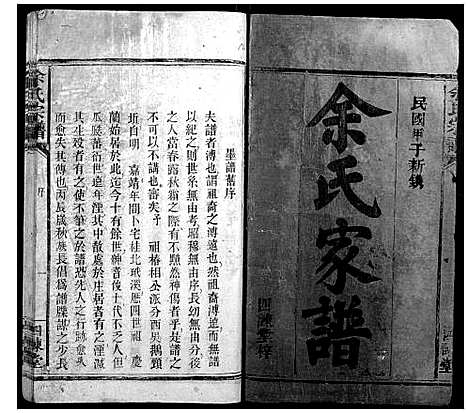 民國甲子新鐫
余氏家譜
四諫堂梓
墨譜舊序
夫譜者溥也謂祖裔之溥遠也然祖裔溥遠而無
以紀之則世系無由考昭穆無由序長幼無由分後
之人當春露秋霜之際有不顯然神傷者乎是譜之
不可以不講也審矣予　祖椿相公派分西吳鵝頸
圻自明　嘉靖年間卜宅桂北　溪歷四世祖　慶
蘭始居於此迄今十有餘世紳者後十代不乏人但
瓜瓞蕃衍世遠年湮其中散處於庄居者有之湮滅
其生歿者有之使不筆之於譜恐先人之行跡愈久
而愈失其傳也丙辰歲秋族長倡為譜牒謀之少長
余氏宗譜
序
四諫堂